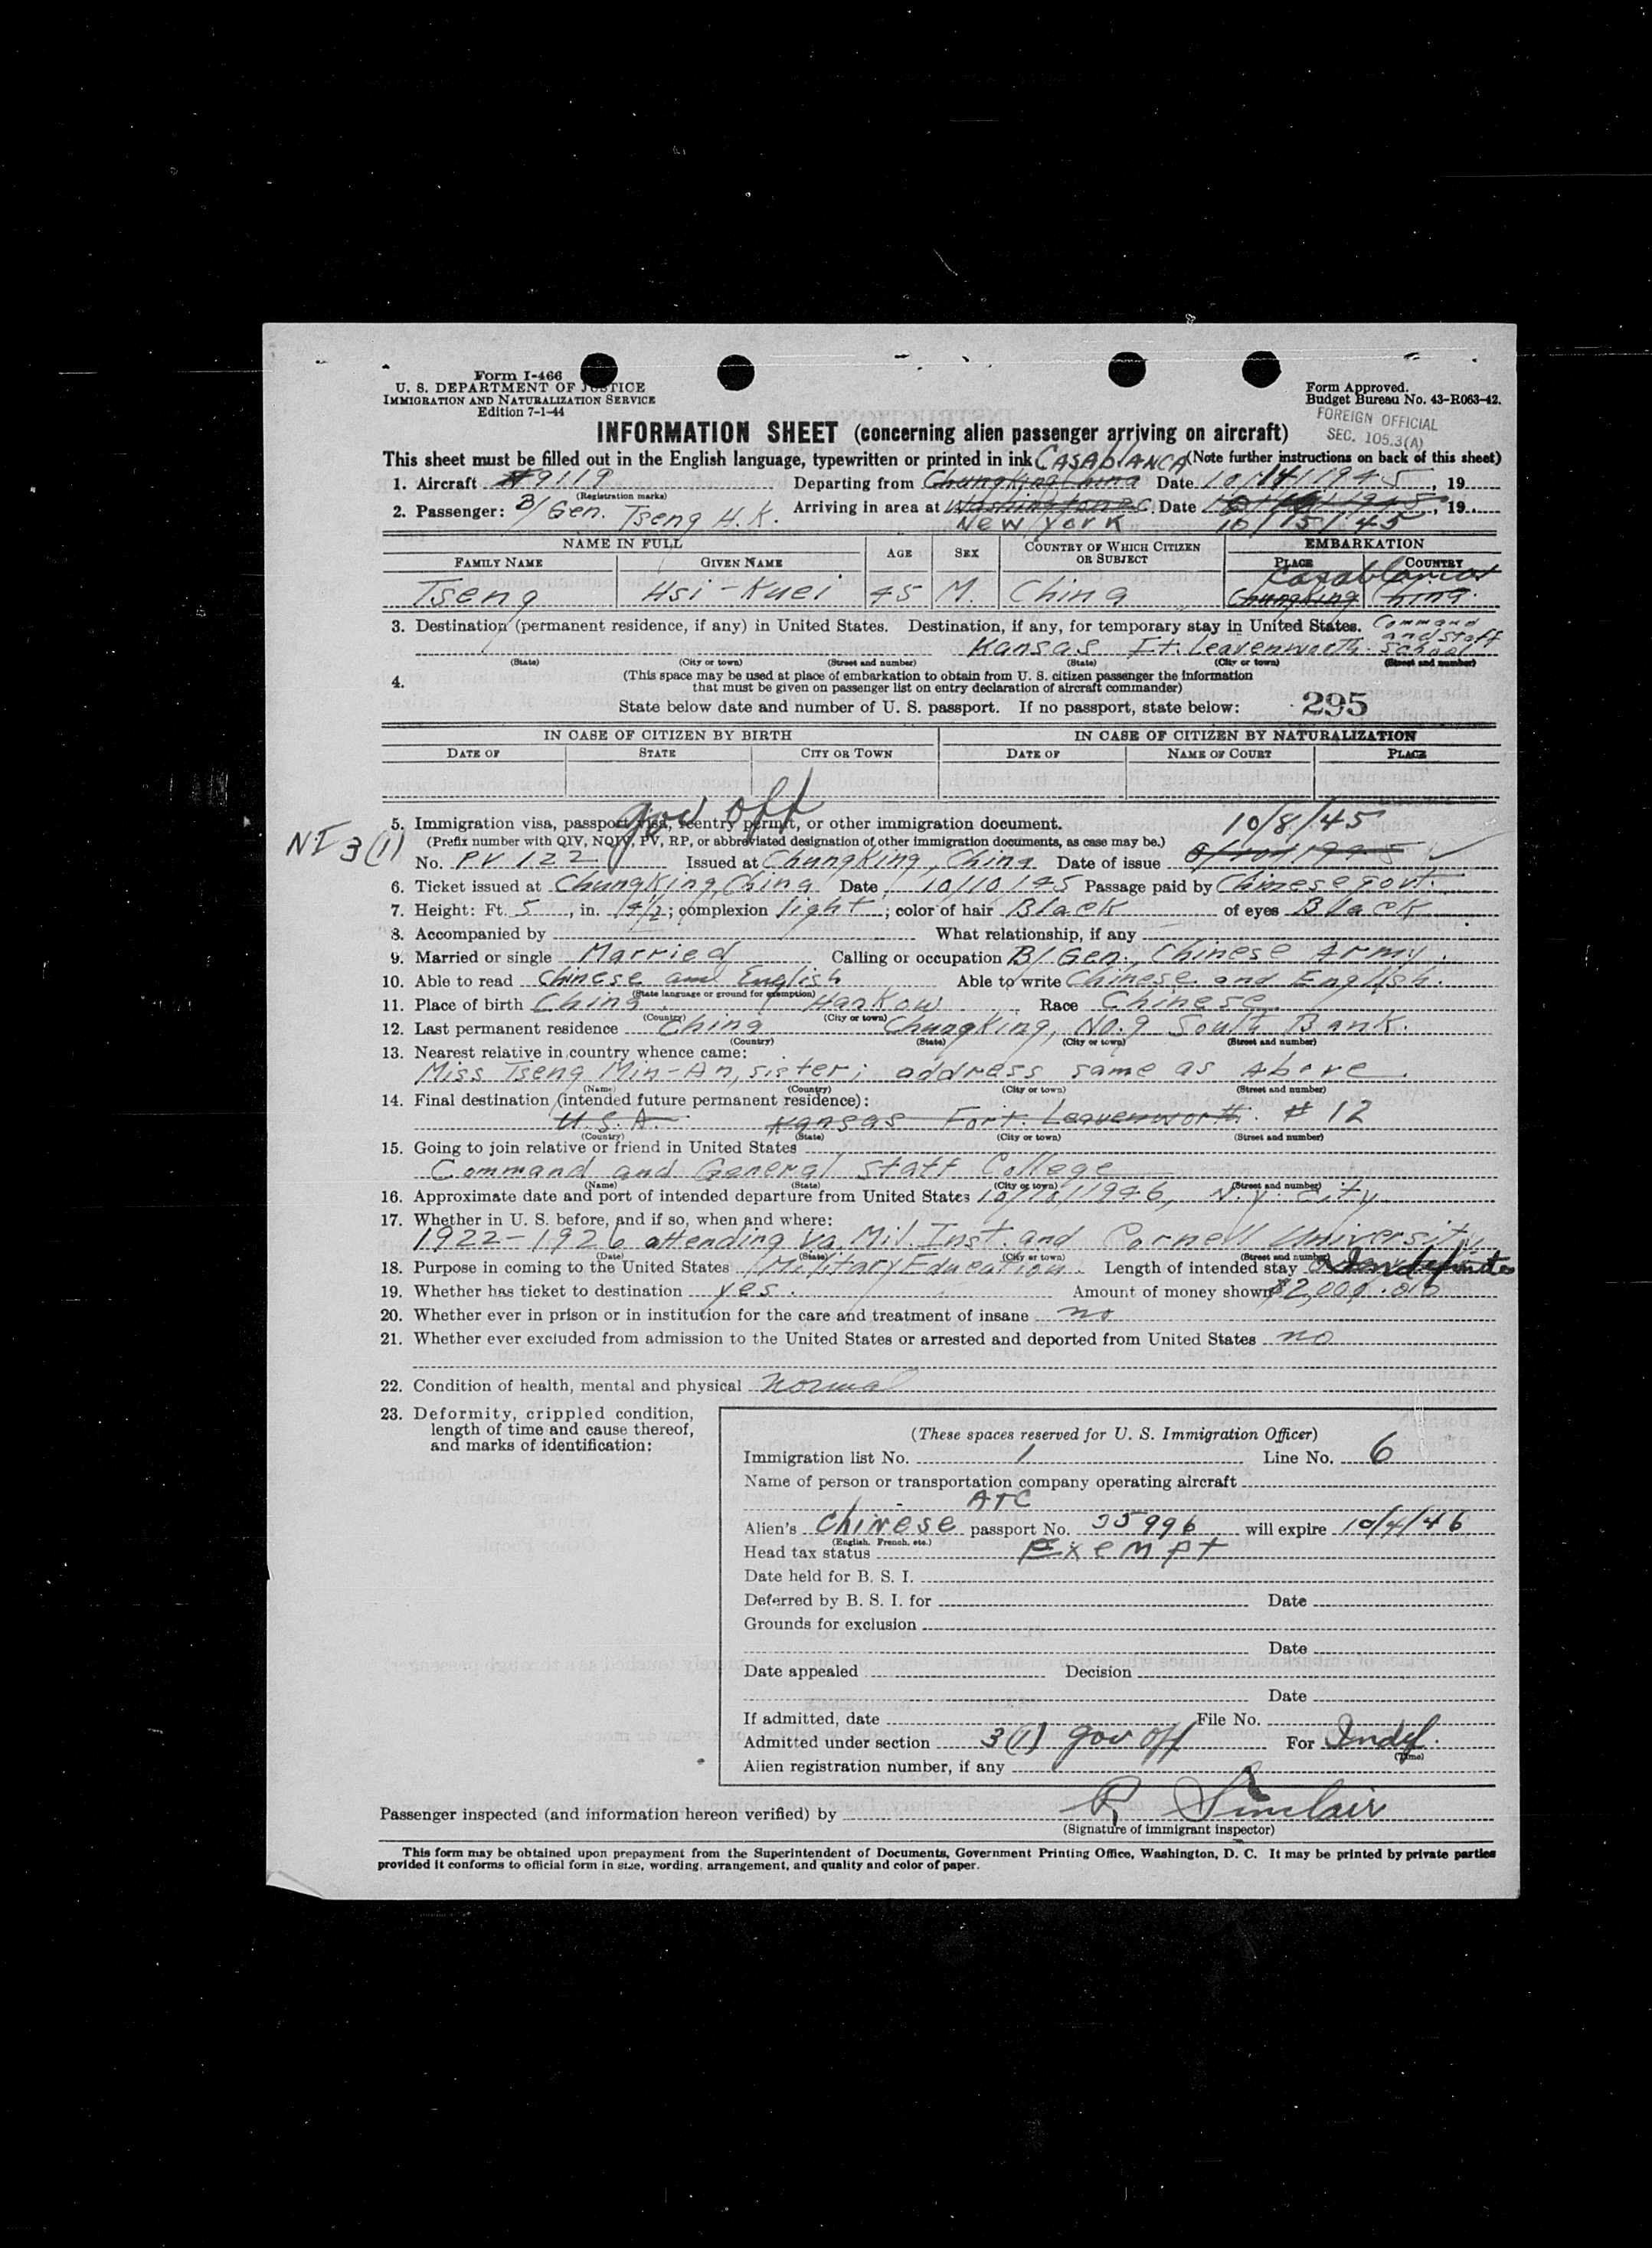 Form I-466
U. S. DEPARTMENT OF JUSTICE
IMMIGRATION AND NATURALIZATION SERVICE
Edition 7-1-44
Form Approved.
Budget Bureau No. 43-R063-42.
FOREIGN OFFICIAL
SEC. 105.3(A)
INFORMATION SHEET (concerning alien passenger arriving on aircraft)
This sheet must be filled out in the English language, typewritten or printed in ink. CASABLANCA (Note further instructions on back of this sheet)
1. Aircraft #9119 Departing from Chungking China Date 10/14/1945, 19
(Registration marks)
2. Passenger: B/Gen. Tseng H.K. Arriving in area at Washington D.C. Date , 19
New York 10/15/45
NAME IN FULL AGE SEX COUNTRY OF WHICH CITIZEN OR SUBJECT EMBARKATION
FAMILY NAME GIVEN NAME PLACE COUNTRY
Casablanca
Tseng Hsi-Kuei 45 M. China Chungking China.
3. Destination (permanent residence, if any) in United States. Destination, if any, for temporary stay in United States. Command and staff
Kansas Ft. Leavenworth School
(State) (City or town) (Street and number) (State) (City or town) (Street and number)
4. (This space may be used at place of embarkation to obtain from U. S. citizen passenger the information
that must be given on passenger list on entry declaration of aircraft commander)
State below date and number of U. S. passport. If no passport, state below: 295
IN CASE OF CITIZEN BY BIRTH IN CASE OF CITIZEN BY NATURALIZATION
DATE OF STATE CITY OR TOWN DATE OF NAME OF COURT PLACE
gov off
5. Immigration visa, passport visa, reentry permit, or other immigration document. 10/8/45
NI 3(1) (Prefix number with QIV, NQIV, PV, RP, or abbreviated designation of other immigration documents, as case may be.)
No. PV 122 Issued at Chungking, China Date of issue
6. Ticket issued at Chungking, China Date 10/10/45 Passage paid by Chinese Govt.
7. Height: Ft. 5, in. 4½; complexion light; color of hair Black of eyes Black
8. Accompanied by What relationship, if any
9. Married or single Married Calling or occupation B/Gen., Chinese Army.
10. Able to read Chinese and English Able to write Chinese and English.
(State language or ground for exemption)
11. Place of birth China Hankow Race Chinese
(Country) (City or town)
12. Last permanent residence China Chungking, No. 9 South Bank.
(Country) (State) (City or town) (Street and number)
13. Nearest relative in country whence came:
Miss Tseng Min-An, sister; address same as above.
(Name) (Country) (City or town) (Street and number)
14. Final destination (intended future permanent residence):
U.S.A. Kansas Fort Leavenworth. #12
(Country) (State) (City or town) (Street and number)
15. Going to join relative or friend in United States
Command and General Staff College
(Name) (State) (City or town) (Street and number)
16. Approximate date and port of intended departure from United States 10/10/1946, N.Y. City
17. Whether in U. S. before, and if so, when and where:
1922-1926 attending Va. Mil. Inst. and Cornell University
(Date) (State) (City or town) (Street and number)
18. Purpose in coming to the United States Military Education. Length of intended stay Indefinite
19. Whether has ticket to destination yes. Amount of money shown $2,000.00
20. Whether ever in prison or in institution for the care and treatment of insane no
21. Whether ever excluded from admission to the United States or arrested and deported from United States no
22. Condition of health, mental and physical Normal
23. Deformity, crippled condition,
length of time and cause thereof,
and marks of identification:
(These spaces reserved for U. S. Immigration Officer)
Immigration list No. 1 Line No. 6
Name of person or transportation company operating aircraft
ATC
Alien's Chinese passport No. 35996 will expire 10/4/46
(English, French, etc.)
Head tax status Exempt
Date held for B. S. I.
Deferred by B. S. I. for Date
Grounds for exclusion
Date
Date appealed Decision
Date
If admitted, date File No.
Admitted under section 3(1) gov off For Indef.
(Time)
Alien registration number, if any
Passenger inspected (and information hereon verified) by R Sinclair
(Signature of immigrant inspector)
This form may be obtained upon prepayment from the Superintendent of Documents, Government Printing Office, Washington, D. C. It may be printed by private parties
provided it conforms to official form in size, wording, arrangement, and quality and color of paper.